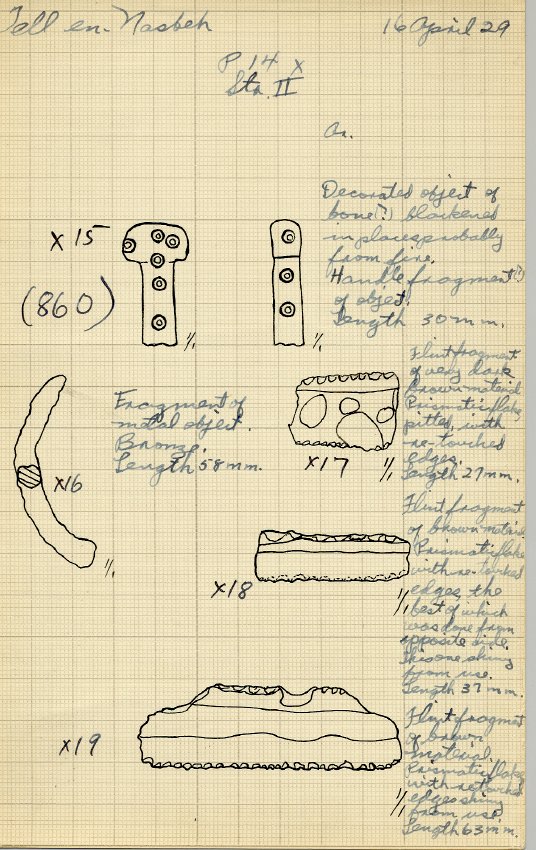 Tell en-Nasbeh
16 April 29
P 14 x
Sta. II
An.
Decorated object of
bone(?) blackened
in places, probably
from fire.
Handle fragment(?)
of object.
Length 30 mm.
x15
(860)
1/1
1/1
Fragment of
metal object.
Bronze.
Length 58 mm.
x16
1/1
Flint fragment
of very dark
brown material
Prismatic flake,
pitted, with
re-touched
edges.
Length 27 mm.
x17
1/1
Flint fragment
of brown material
Prismatic flake
with re-touched
edges, the
best of which
was done from
opposite side.
This one shiny
from use.
Length 37 mm.
x18
1/1
Flint fragment
of brown
material.
Prismatic flake
with retouched
edges shiny
from use.
Length 63 mm.
x19
1/1